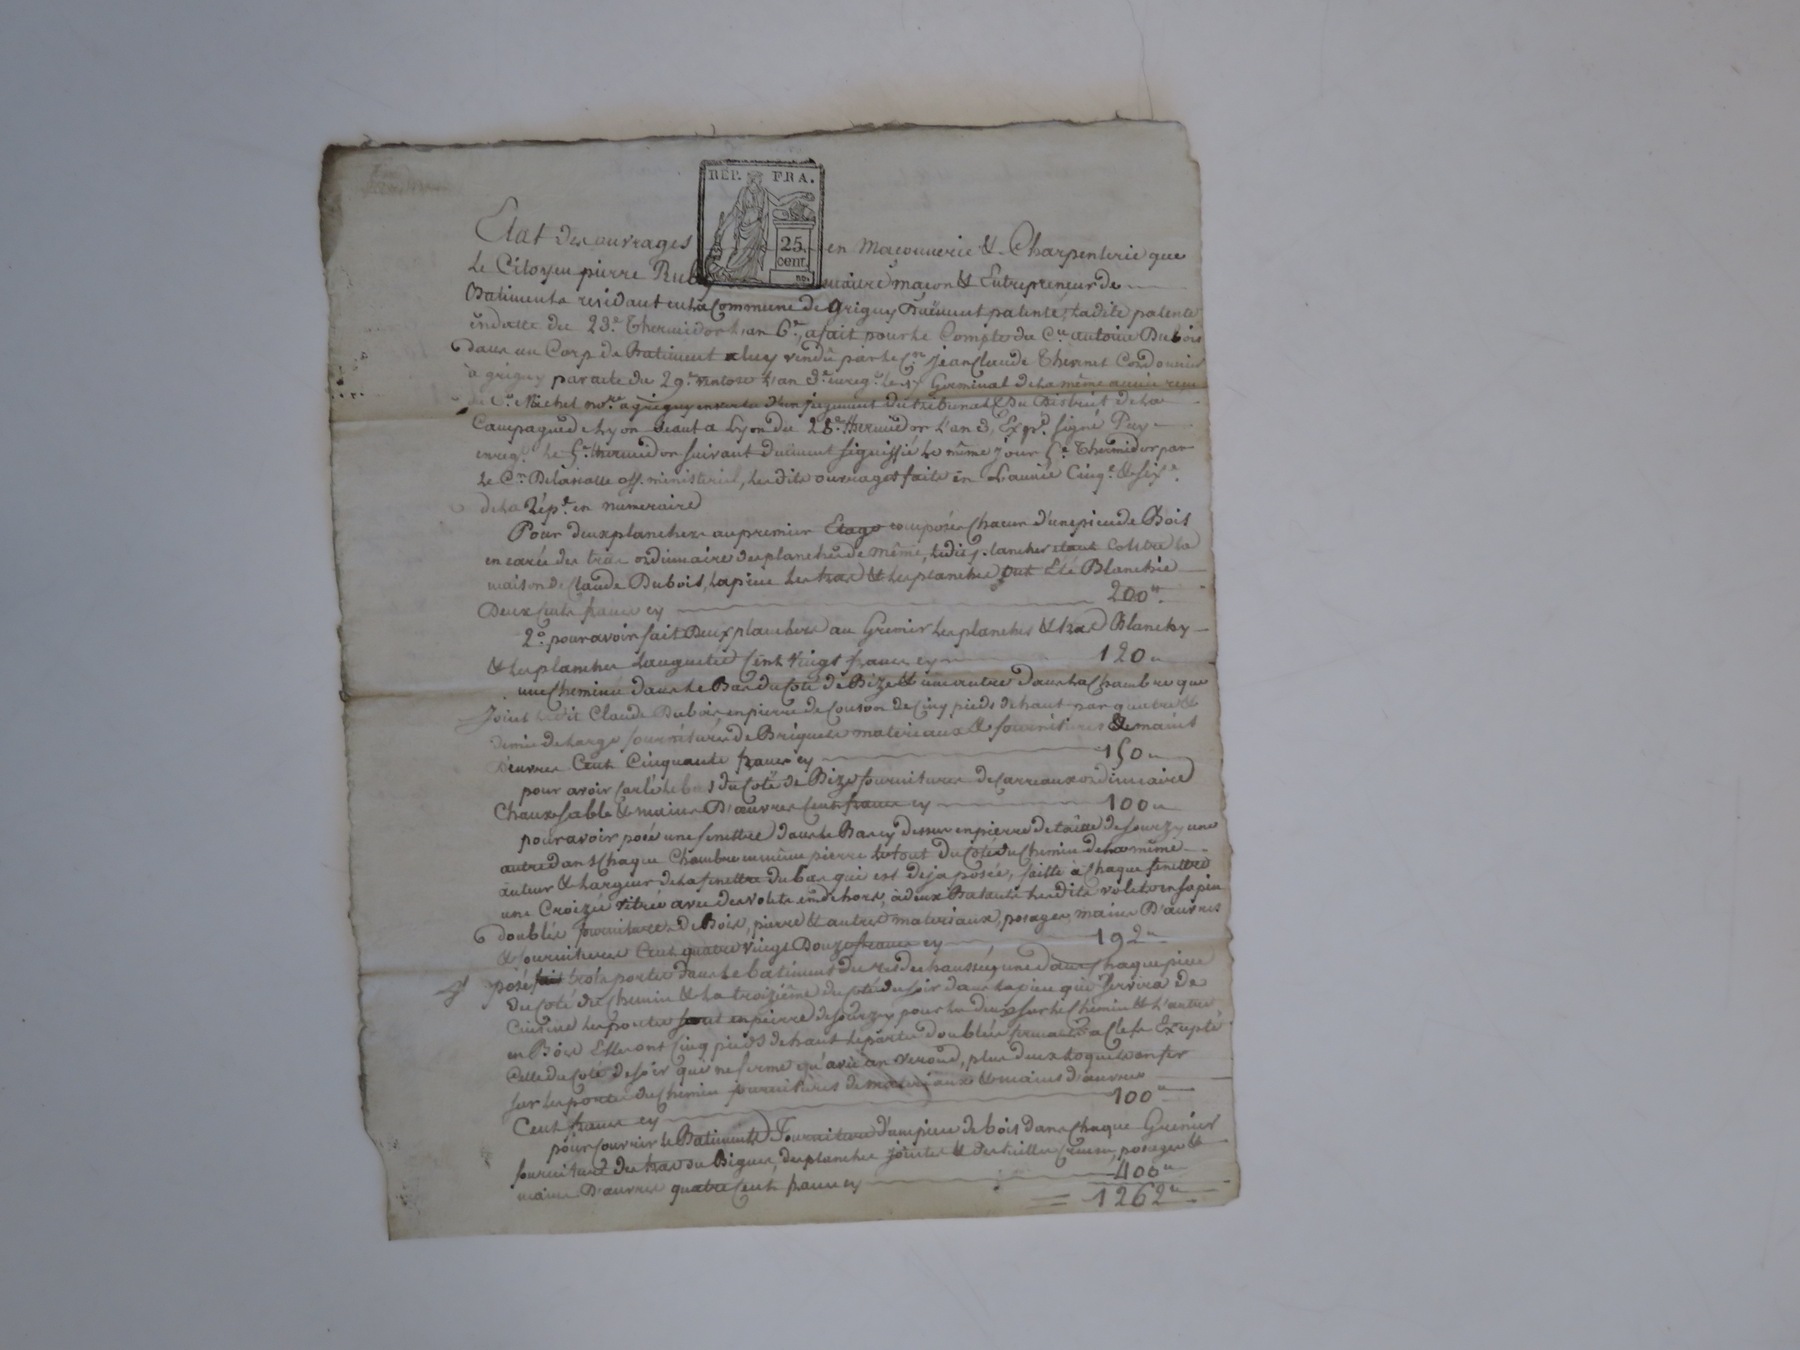 REP. FRA.
25. cent.
Etat des ouvrages en maconnerie & Charpenterie que
Le Citoyen pierre maitre macon & Entrepreneur de
Batiments residant en la Commune de Grigny patente, ladite patente
en datte du 23.e Thermidor l'an 6.e, a fait pour le Compte du C.en antoine Dubois
dans un Corp de Batiment a luy vendû par le C.en Jean Claude Thevenet Cordonnier
à grigny par acte du 29.e ventose l'an 3.e enreg.é le 17 Germinal de la même année reçu
Michel no.re a grigny en vertu d'un jugement du tribunal Du District de la
Campagne de Lyon seant a Lyon du 28.e thermidor l'an 3, Exp.é signé Puy
enreg.é le 5.e thermidor suivant duement signiffié le même jour 5.e Thermidor par
Le C.en off. ministeriel, lesdits ouvrages faits en L'année Cinq.e & six.e
de la Rép.e en numeraire
Pour deux planchers au premier Etage composés Chacun d'une piece de Bois
en carée des tras ordinaire des planches de même, ledit plancher Contre la
maison de Claude Dubois, la piece les tras & les planches ont Eté Blanchie
Deux Cents francs cy 200"
2.o pour avoir fait Deux planchers au Grenier les planches & tras Blanchy
& les planches languetée Cent vingt francs cy 120"
une Cheminée dans le Bas du Coté de Bize & une autre dans la Chambre que
Joint ledit Claude Dubois en pierre de Couson de Cinq pieds de haut par quatre &
demie de large fournitures de Briques materiaux & fournitures & mains
D'euvres Cent Cinquante francs cy 150"
pour avoir Carlé le bas du Coté de Bize fournitures de Carreaux ordinaire
Chaux sable & mains D'œuvres Cent francs cy 100"
pour avoir posé une fenettre dans le Bas cy dessus en pierre de taille de une
autre dans Chaque Chambre en même pierre le tout du Coté du Chemin de la même
auteur & largeur de la fenettre du bas qui est deja posée, faitte à Chaque fenettre
une Croizée vitrée avec des volets en dehors, à deux Batants lesdits volets en sapin
doublés fournitures de Bois, pierre & autres materiaux, posages mains D'œuvres
& fournitures Cent quatre vingt Douze francs cy 192"
posé trois portes dans le batiment du res de chaussé, une dans Chaque piece
du Coté du Chemin & la troizième du Coté du soir dans la piece qui servira de
Cuisine les portes en pierre de pour les deux sur le Chemin & l'autre
en Bois Elles ont Cinq pieds de haut doublés fermants a Clefs Exepté
Celle du Coté de soir qui ne ferme qu'avec un veroud, plus deux loquets en fer
sur les portes du Chemin fournitures de materiaux & mains d'œuvres
Cent francs cy 100"
pour Couvrir le Batiment Fourniture d'une piece de bois dans Chaque Grenier
fourniture des tras des planches jointes & des tuilles posages &
mains D'œuvres quatre Cent francs cy 400"
1262"